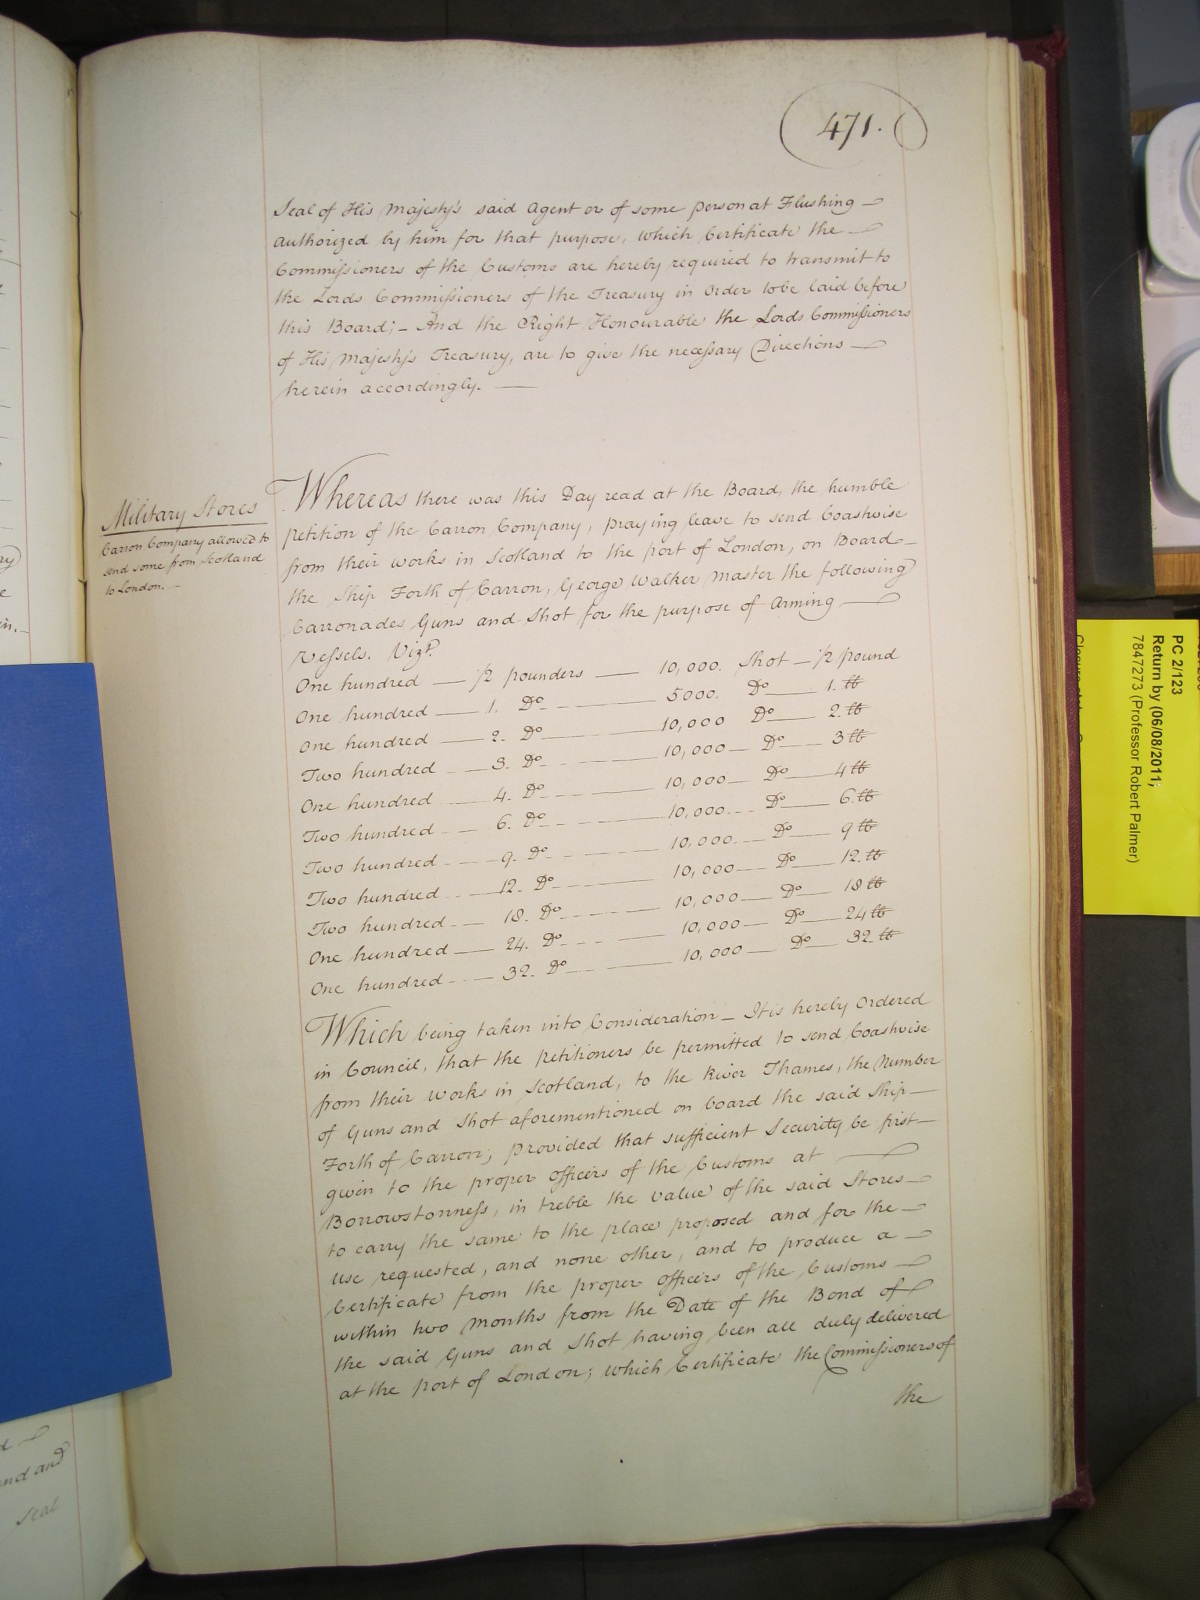 471.
Seal of His Majesty's said Agent or of some person at Flushing —
authorized by him for that purpose, which Certificate the —
Commissioners of the Customs are hereby required to transmit to
the Lords Commissioners of the Treasury in Order to be laid before
this Board; – And the Right Honourable the Lords Commissioners
of His Majesty's Treasury, are to give the necessary Directions —
herein accordingly. —
Military Stores
Carron Company allowed to
send some from Scotland
to London. —
Whereas there was this Day read at the Board, the humble
petition of the Carron Company, praying leave to send Coastwise
from their works in Scotland to the port of London, on Board –
the Ship Forth of Carron, George Walker Master the following
Carronades Guns and Shot for the purpose of Arming —
Vessels. Vizt.
One hundred — 1/2 pounders — 10,000. Shot — 1/2 pound
One hundred — 1. Do — 5000. Do — 1. lb
One hundred — 2. Do — 10,000 Do — 2. lb
Two hundred — 3. Do — 10,000 — Do — 3 lb
One hundred — 4. Do — 10,000 — Do — 4 lb
Two hundred — 6. Do — 10,000 — Do — 6. lb
Two hundred — 9. Do — 10,000 — Do — 9 lb
Two hundred — 12. Do — 10,000 — Do — 12. lb
Two hundred — 18. Do — 10,000 — Do — 18 lb
One hundred — 24. Do — 10,000 — Do — 24 lb
One hundred — 32. Do — 10,000 — Do — 32. lb
Which being taken into Consideration – It is hereby Ordered
in Council, that the petitioners be permitted to send Coastwise
from their works in Scotland, to the River Thames, the Number
of Guns and Shot aforementioned on board the said Ship —
Forth of Carron, provided that sufficient Security be first —
given to the proper Officers of the Customs at —
Borrowstonness, in treble the value of the said Stores —
to carry the same to the place proposed and for the —
use requested, and none other, and to produce a —
Certificate from the proper Officers of the Customs —
within two months from the Date of the Bond of
the said Guns and Shot having been all duely delivered
at the port of London; which Certificate the Commissioners of
the
PC 2/123
Return by (06/08/2011;
7847273 (Professor Robert Palmer)
and and
Seal